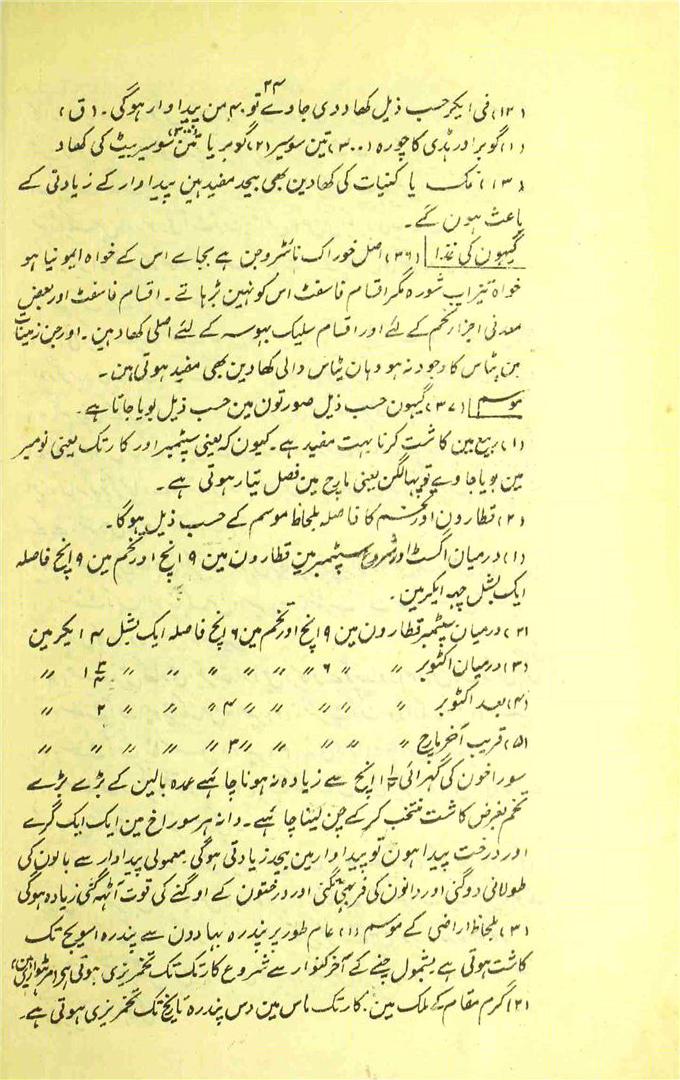 ۳۴
(۱۲) فی ایکڑ حسب ذیل کھاد دی جاوے تو ۴۰ من پیداوار ہوگی۔ (ق)
(۱) گوبر اور ہڈی کا چورہ (۳۰۰) تین سوسیر (۲) گوبر یا (۳۰۰) تین سوسیر بیٹ کی کھاد
(۱۳) نمک یا کنیات کی کھادین بھی بیحد مفید ہین پیداوار کے زیادتی کے
باعث ہون گے۔
گیہون کی غذا (۳۶) اصل خوراک نائٹروجن ہے بجاے اس کے خواہ ایمونیا ہو
خواہ تیزاب شورہ مگر اقسام فاسفٹ اس کو نہین بڑہاتے۔ اقسام فاسفٹ اور بعض
معدنی اجزار تخم کے لئے اور اقسام سلیک بہوسہ کے لئے اصلی کھاد ہین۔ اور جن زمینات
مین پٹاس کا وجود نہ ہو وہان پٹاس والی کھادین بھی مفید ہوتی ہن۔
موسم (۳۷) گیہون حسب ذیل صورتون مین حسب ذیل بویا جاتا ہے۔
(۱) ربیع مین کاشت کرنا بہت مفید ہے۔ کیون کہ یعنی سپٹمبر اور کارتک یعنی نومبر
مین بویا جاوے تو پہالگن یعنی مارچ مین فصل تیار ہوتی ہے۔
(۲) قطارون اور تخم کا فاصلہ بلحاظ موسم کے حسب ذیل ہوگا۔
(۱) درمیان اگسٹ اور شروع سپٹمبر مین قطارون مین ۹ انچ اور تخم مین ۹ انچ فاصلہ
ایک بشل چہہ ایکر مین۔
(۲) درمیان سپٹمبر قطارون مین ۹ انچ اور تخم مین ۶ انچ فاصلہ ایک بشل ۴ ایکر مین
(۳) درمیان اکٹوبر 〃 〃 〃 ۶ 〃 〃 〃 〃 〃 ۱ ۳/۴ 〃
(۴) بعد اکٹوبر 〃 〃 〃 〃 ۴ 〃 〃 〃 ۲ 〃
(۵) قریب آخر مارچ 〃 〃 〃 〃 ۳ 〃 〃 〃 〃 〃
سوراخون کی گہرائی ۱ ۱/۲ انچ سے زیادہ نہ ہونا چاہئیے عمدہ بالین کے بڑے بڑے
تخم بغرض کاشت منتخب کرکے چن لینا چاہئیے۔ دانہ ہر سوراخ مین ایک ایک گرے
اور درخت پیدا ہون تو پیداوار مین بیحد زیادتی ہوگی معمولی پیداوار سے بالون کی
طولانی دوگنی اور دانون کی فربہی تگنی اور درختون کے اوگنے کی قوت آٹہہ گنی زیادہ ہوگی
(۳) بلحاظ اراضی کے موسم (۱) عام طور پر پندرہ بہادون سے پندرہ اسویج تک
کاشت ہوتی ہے بشمول چنے کے آخر کنوار سے شروع کارتک تک تخمریزی ہوتی ہی
(۲) گرم مقام کے ملک مین کارتک ماس مین دس پندرہ تاریخ تک تخمریزی ہوتی ہے۔